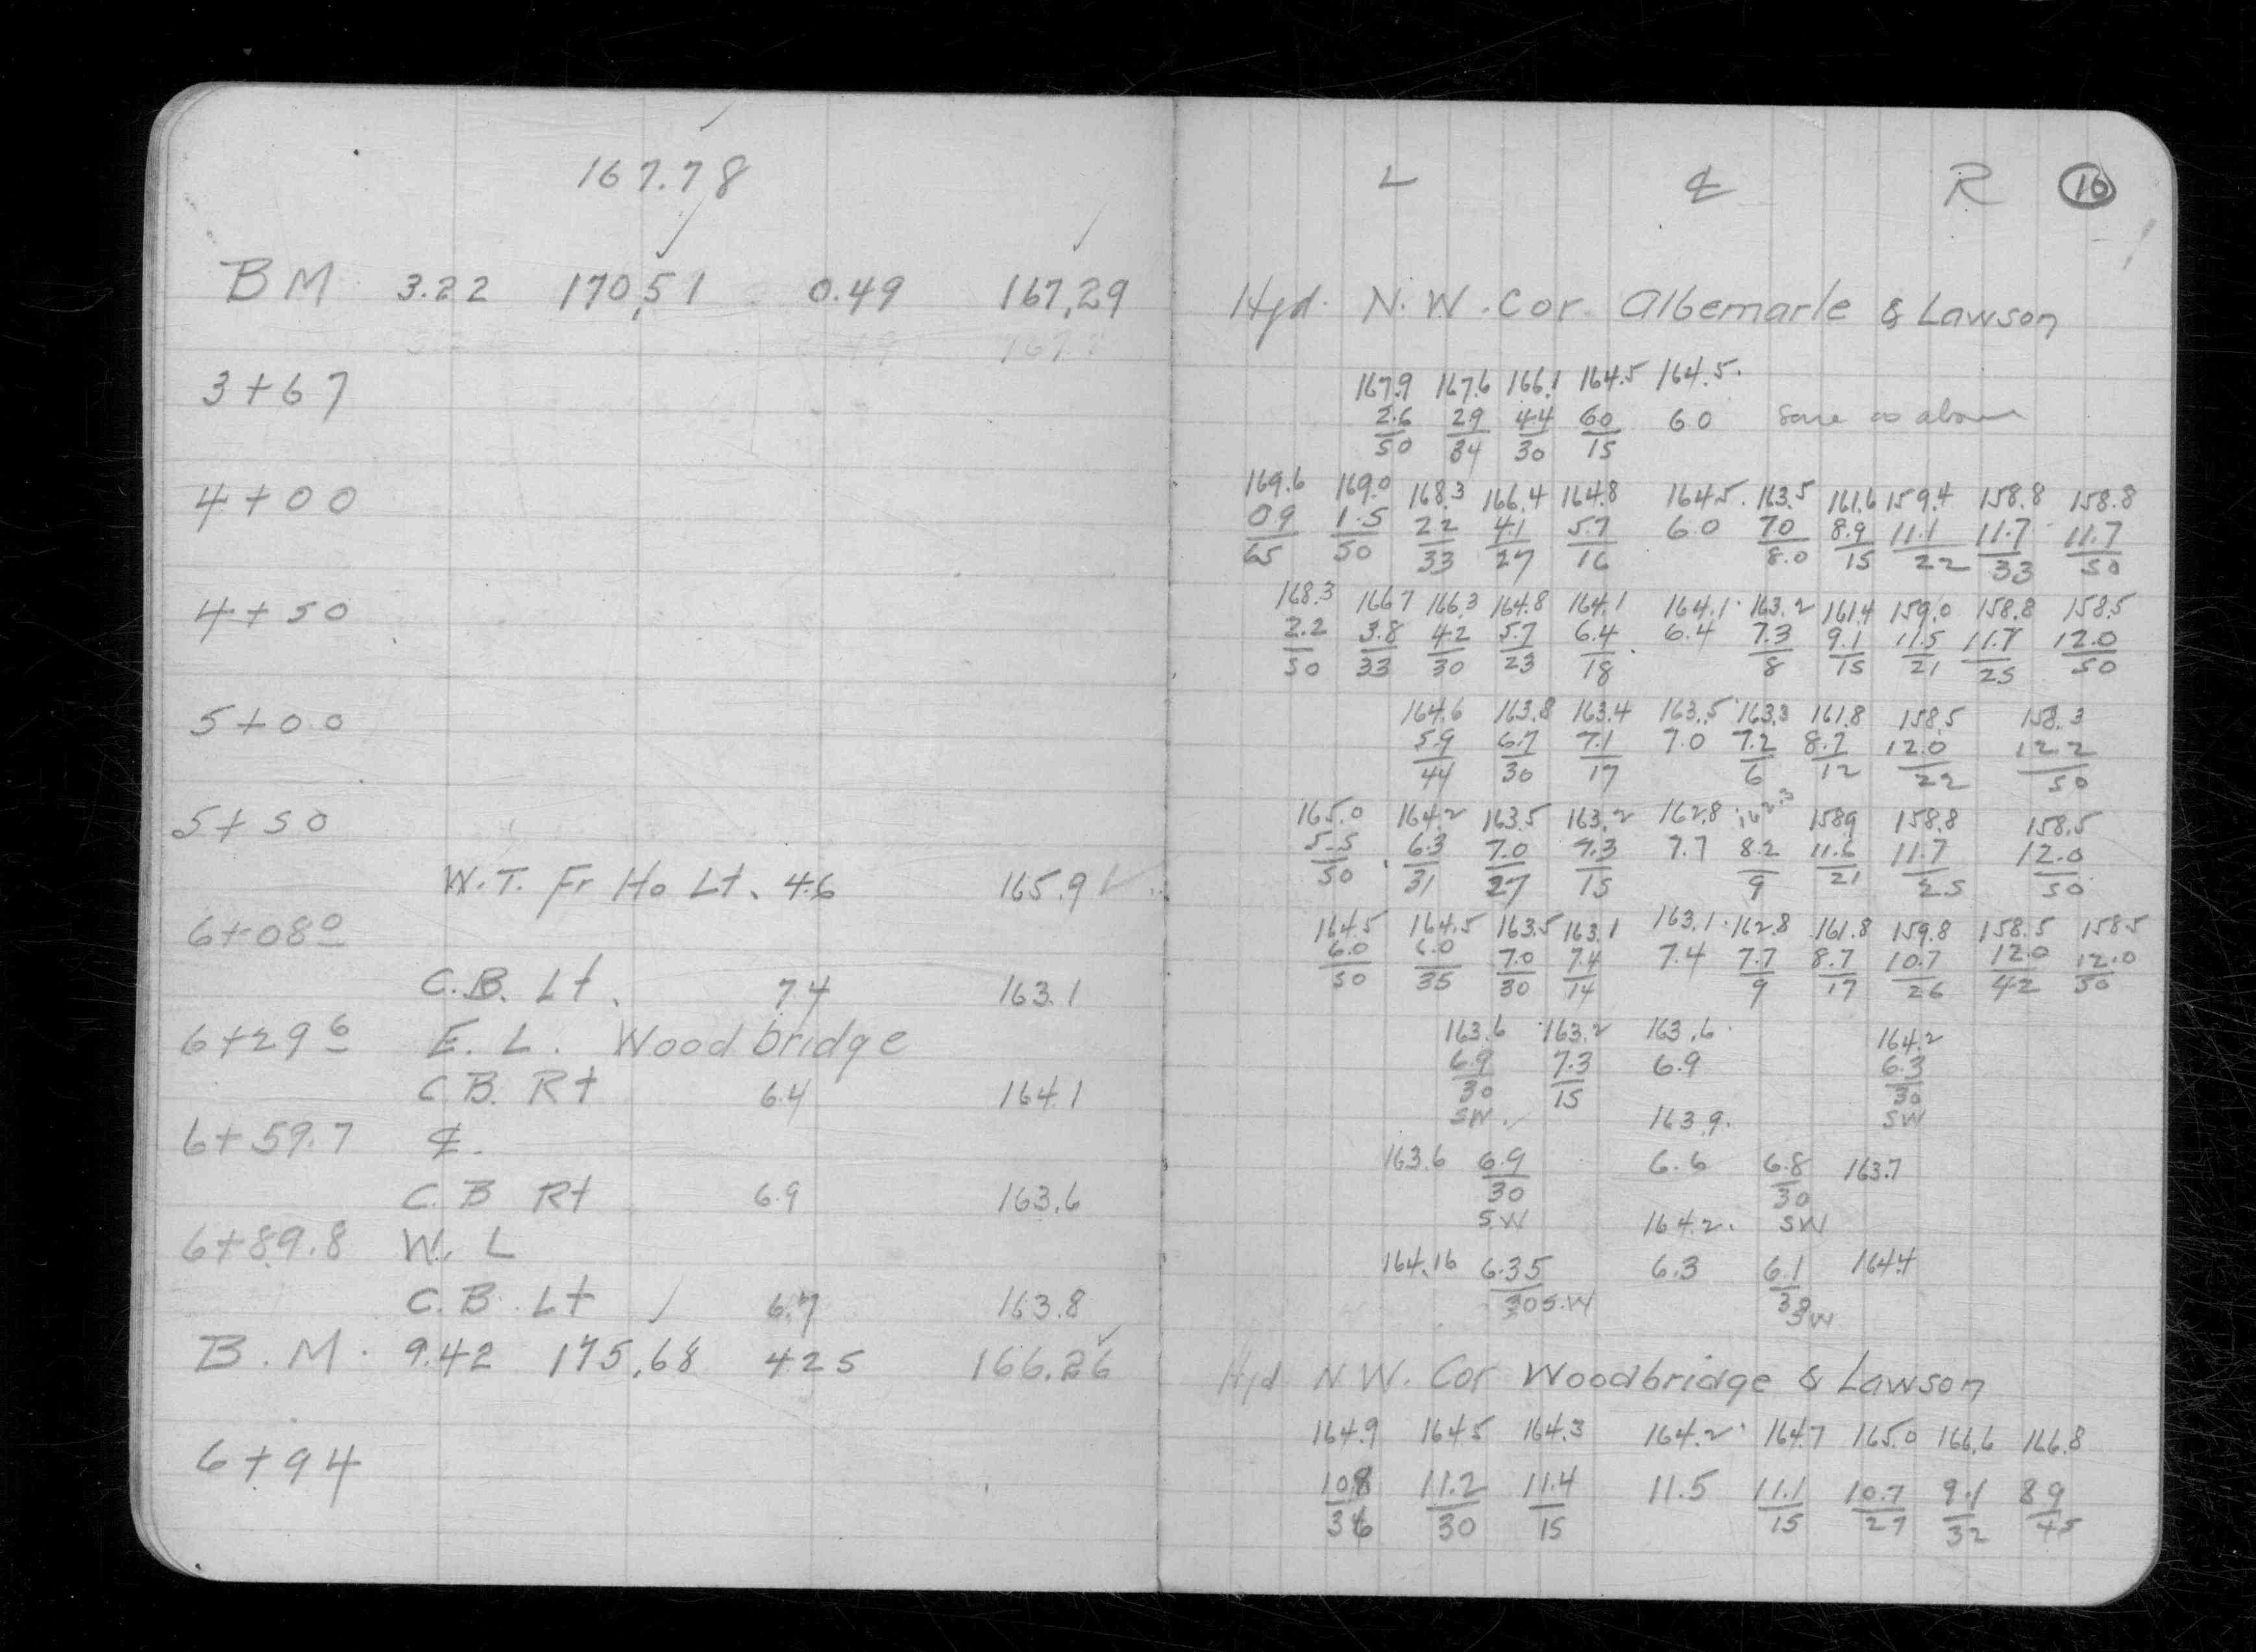 167.78
BM 3.22 170.51 0.49 167.29
3+67
4+00
4+50
5+00
5+50
W.T. Fr Ho Lt. 4.6 165.9
6+08 0
C.B. Lt. 7.4 163.1
6+29 6 E.L. Woodbridge
C.B. Rt 6.4 164.1
6+59.7 ℄.
C.B Rt 6.9 163.6
6+89.8 W.L
C.B. Lt 6.7 163.8
B.M. 9.42 175.68 4.25 166.26
6+94
L ℄ R 16
Hyd. N.W. Cor. Albemarle & Lawson
167.9 167.6 166.1 164.5 164.5
2.6 2.9 4.4 6.0 6.0 Same as above
50 34 30 15
169.6 169.0 168.3 166.4 164.8 164.5 163.5 161.6 159.4 158.8 158.8
0.9 1.5 2.2 4.1 5.7 6.0 7.0 8.9 11.1 11.7 11.7
65 50 33 27 16 8.0 15 22 33 50
168.3 166.7 166.3 164.8 164.1 164.1 163.2 161.4 159.0 158.8 158.5
2.2 3.8 4.2 5.7 6.4 6.4 7.3 9.1 11.5 11.7 12.0
50 33 30 23 18 8 15 21 25 50
164.6 163.8 163.4 163.5 163.3 161.8 158.5 158.3
5.9 6.7 7.1 7.0 7.2 8.7 12.0 12.2
44 30 17 6 12 22 50
165.0 164.2 163.5 163.2 162.8 162.3 158.9 158.8 158.5
5.5 6.3 7.0 7.3 7.7 8.2 11.6 11.7 12.0
50 31 27 15 9 21 25 50
164.5 164.5 163.5 163.1 163.1 162.8 161.8 159.8 158.5 158.5
6.0 6.0 7.0 7.4 7.4 7.7 8.7 10.7 12.0 12.0
50 35 30 14 9 17 26 42 50
163.6 163.2 163.6 164.2
6.9 7.3 6.9 6.3
30 15 30
SW. 163.9. SW
163.6 6.9 6.6 6.8 163.7
30 30
SW 164.2. SW
164.16 6.35 6.3 6.1 164.4
30 S.W 30 SW
Hyd N.W. Cor Woodbridge & Lawson
164.9 164.5 164.3 164.2 164.7 165.0 166.6 166.8
10.8 11.2 11.4 11.5 11.1 10.7 9.1 8.9
36 30 15 15 27 32 45